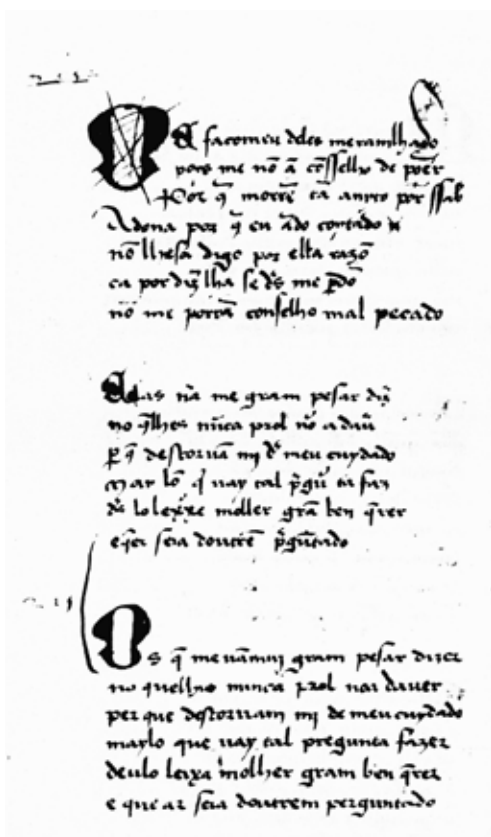 E facomeu deles marauilhado
poys me nõ ã cõsselho de põer
Por q̃ morrẽ tã por ssab̃
A dona por q̃ eu ãdo coitado
nõ lhesã digo por esta razõ
ca por diz̃ lha se d̃s me p̃dõ
nõ me porrã conselho mal pecado
Mas me gram pesar diz̃
no q̃lhes nũca prol nõ a daũ
p q̃ destoruã mi d̃ meu cuydado
Mar lo q̃ uay tal faz̃
d̃s lo leixe moller grã ben q̃rer
seia doutrẽ p̃gũtado
Os q̃ me uam gram pesar dizer
no quelhes nunca prol nai dauer
per que destoruam mi de meu cuydado
marlo que uay tal pregunta fazer
deulo leixa molher gram ben q̃rer
e que ar seia doutrem perguntado